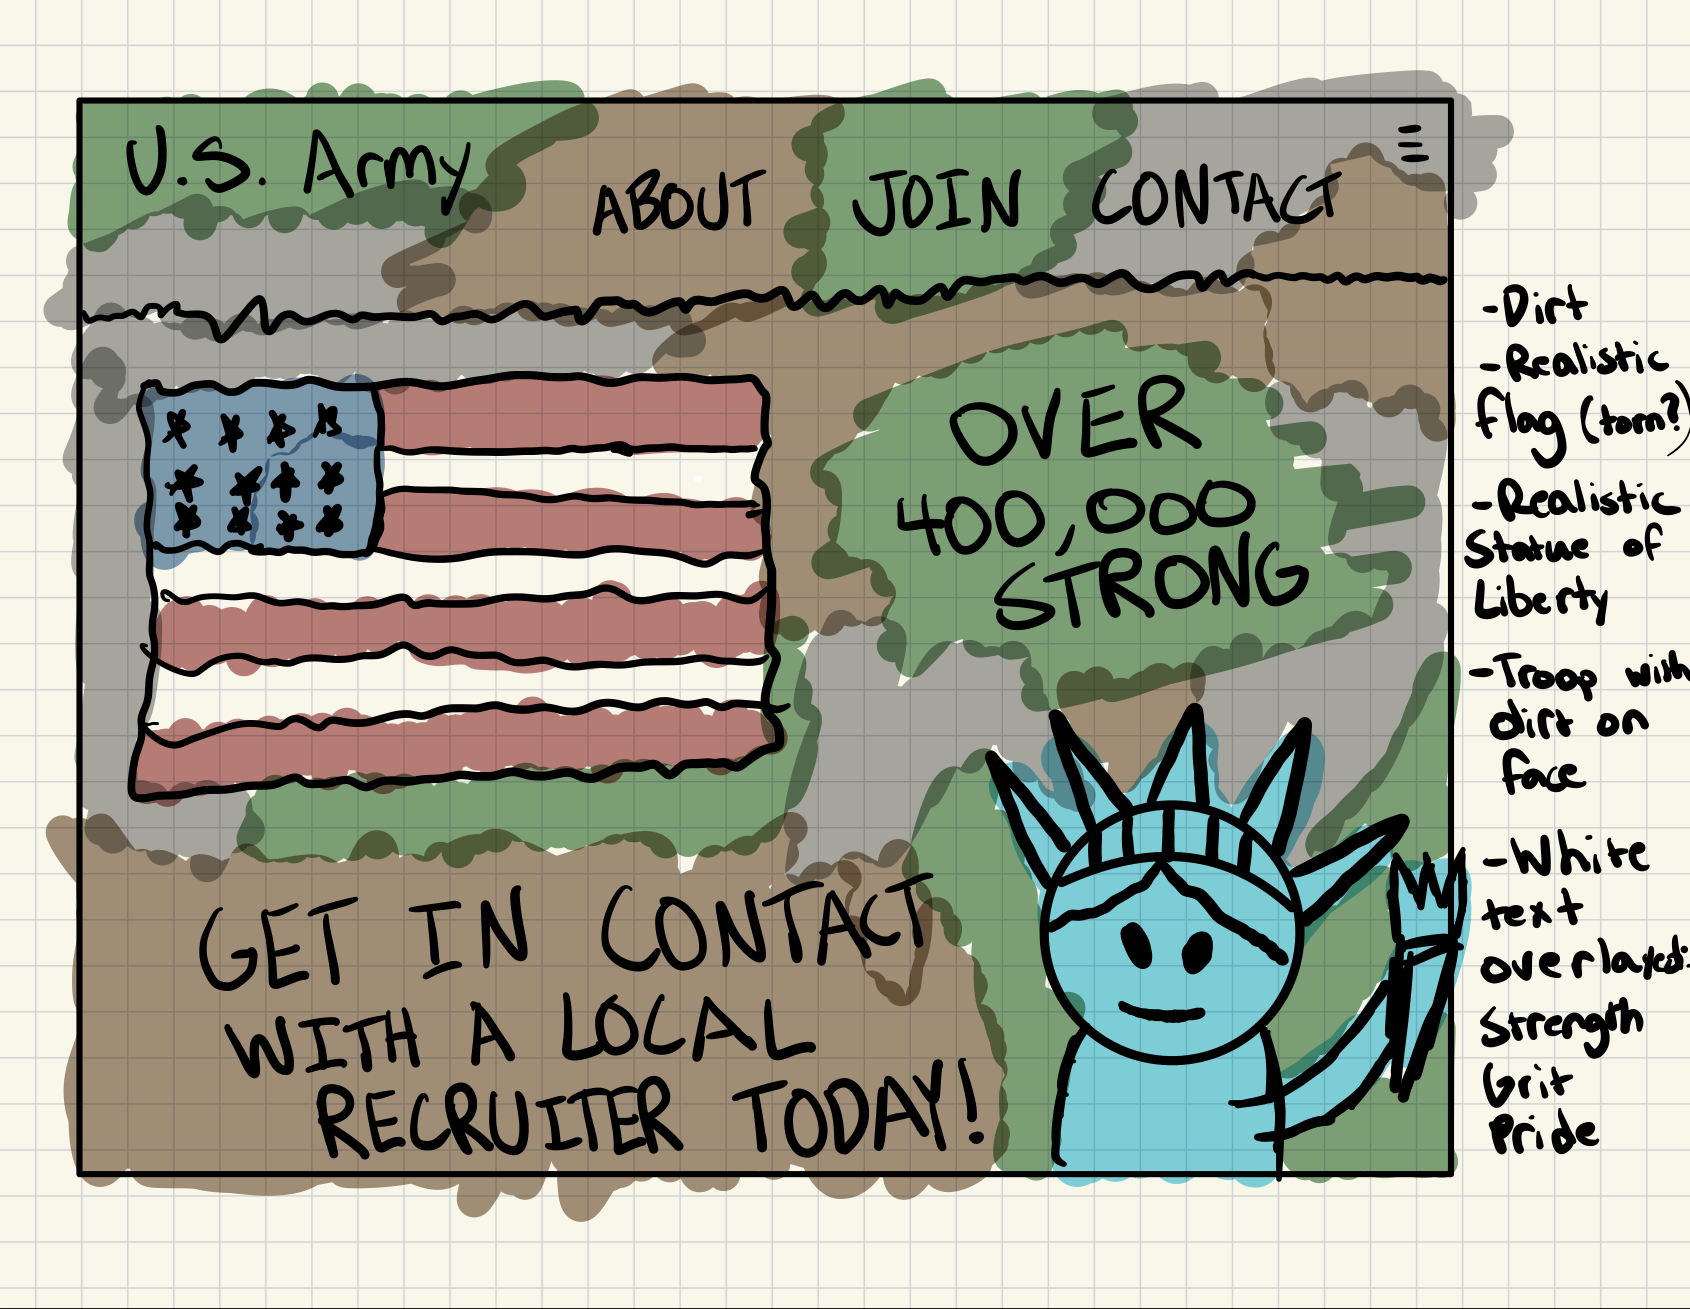 U.S. Army
ABOUT JOIN CONTACT
OVER
400,000
STRONG
GET IN CONTACT
WITH A LOCAL
RECRUITER TODAY!
-Dirt
-Realistic
flag (torn?)
-Realistic
Statue of
Liberty
-Troop with
dirt on
face
-White
text
overlayed:
Strength
Grit
Pride